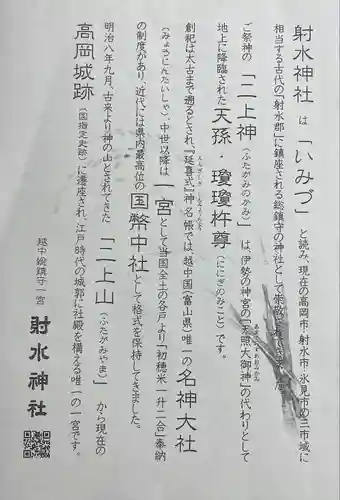 射水神社 は「いみづ」と読み、現在の高岡市・射水市・氷見市の三市域に
相当する古代の「射水郡」に鎮座される総鎮守の神社として崇敬
ご祭神の「二上神(ふたがみのかみ)」は、伊勢の神宮の「天照大御神」の代わりとして
あまてらすおおみかみ
地上に降臨された天孫・瓊瓊杵尊(ににぎのみこと)です。
創祀は太古まで遡るとされ、『延喜式』神名帳では、越中国(富山県)唯一の名神大社
えんぎしき じんみょうちょう
(みょうじんたいしゃ)、中世以降は一宮として当国全土の各戸より「初穂米一升二合」奉納
の制度があり、近代には県内最高位の国幣中社として格式を保持してきました。
明治八年九月、古来より神の山とされてきた「二上山(ふたがみやま)」から現在の
高岡城跡(国指定史跡)に遷座され、江戸時代の城郭に社殿を構える唯一の一宮です。
越中総鎮守一宮 射水神社